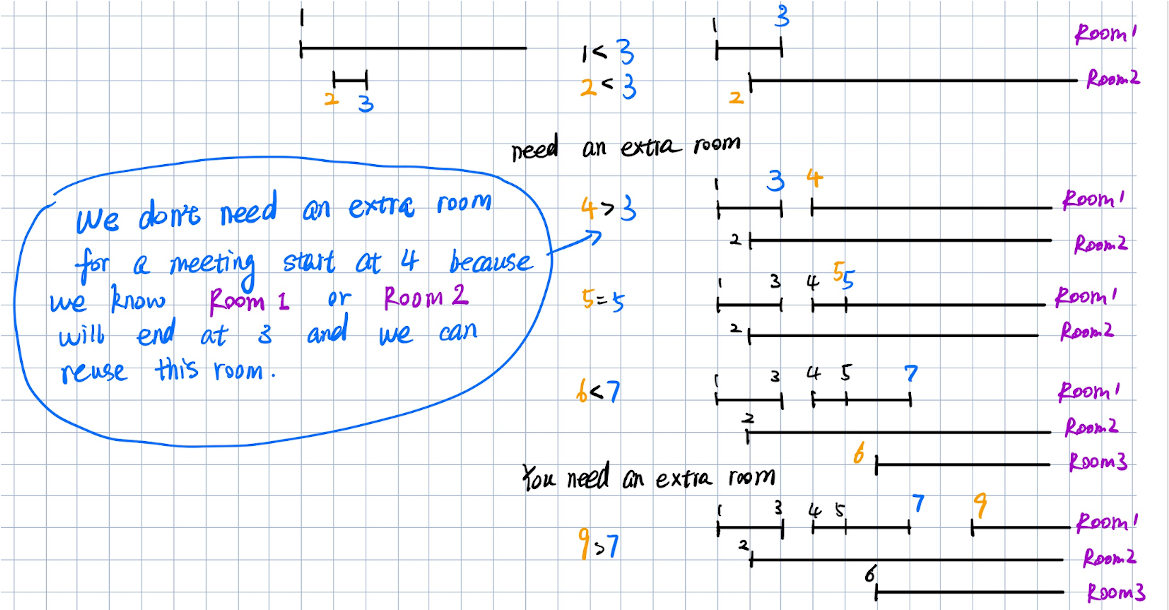 1
2 3
1 < 3
2 < 3
1 3
Room1
2
Room2
need an extra room
4 > 3
1 3 4
Room1
2
Room2
We don't need an extra room
for a meeting start at 4 because
we know Room 1 or Room 2
will end at 3 and we can
reuse this room.
5 = 5
1 3 4 5 5
Room1
2
Room2
6 < 7
1 3 4 5 7
Room1
2
Room2
6
Room3
You need an extra room
9 > 7
1 3 4 5 7 9
Room1
2
Room2
6
Room3